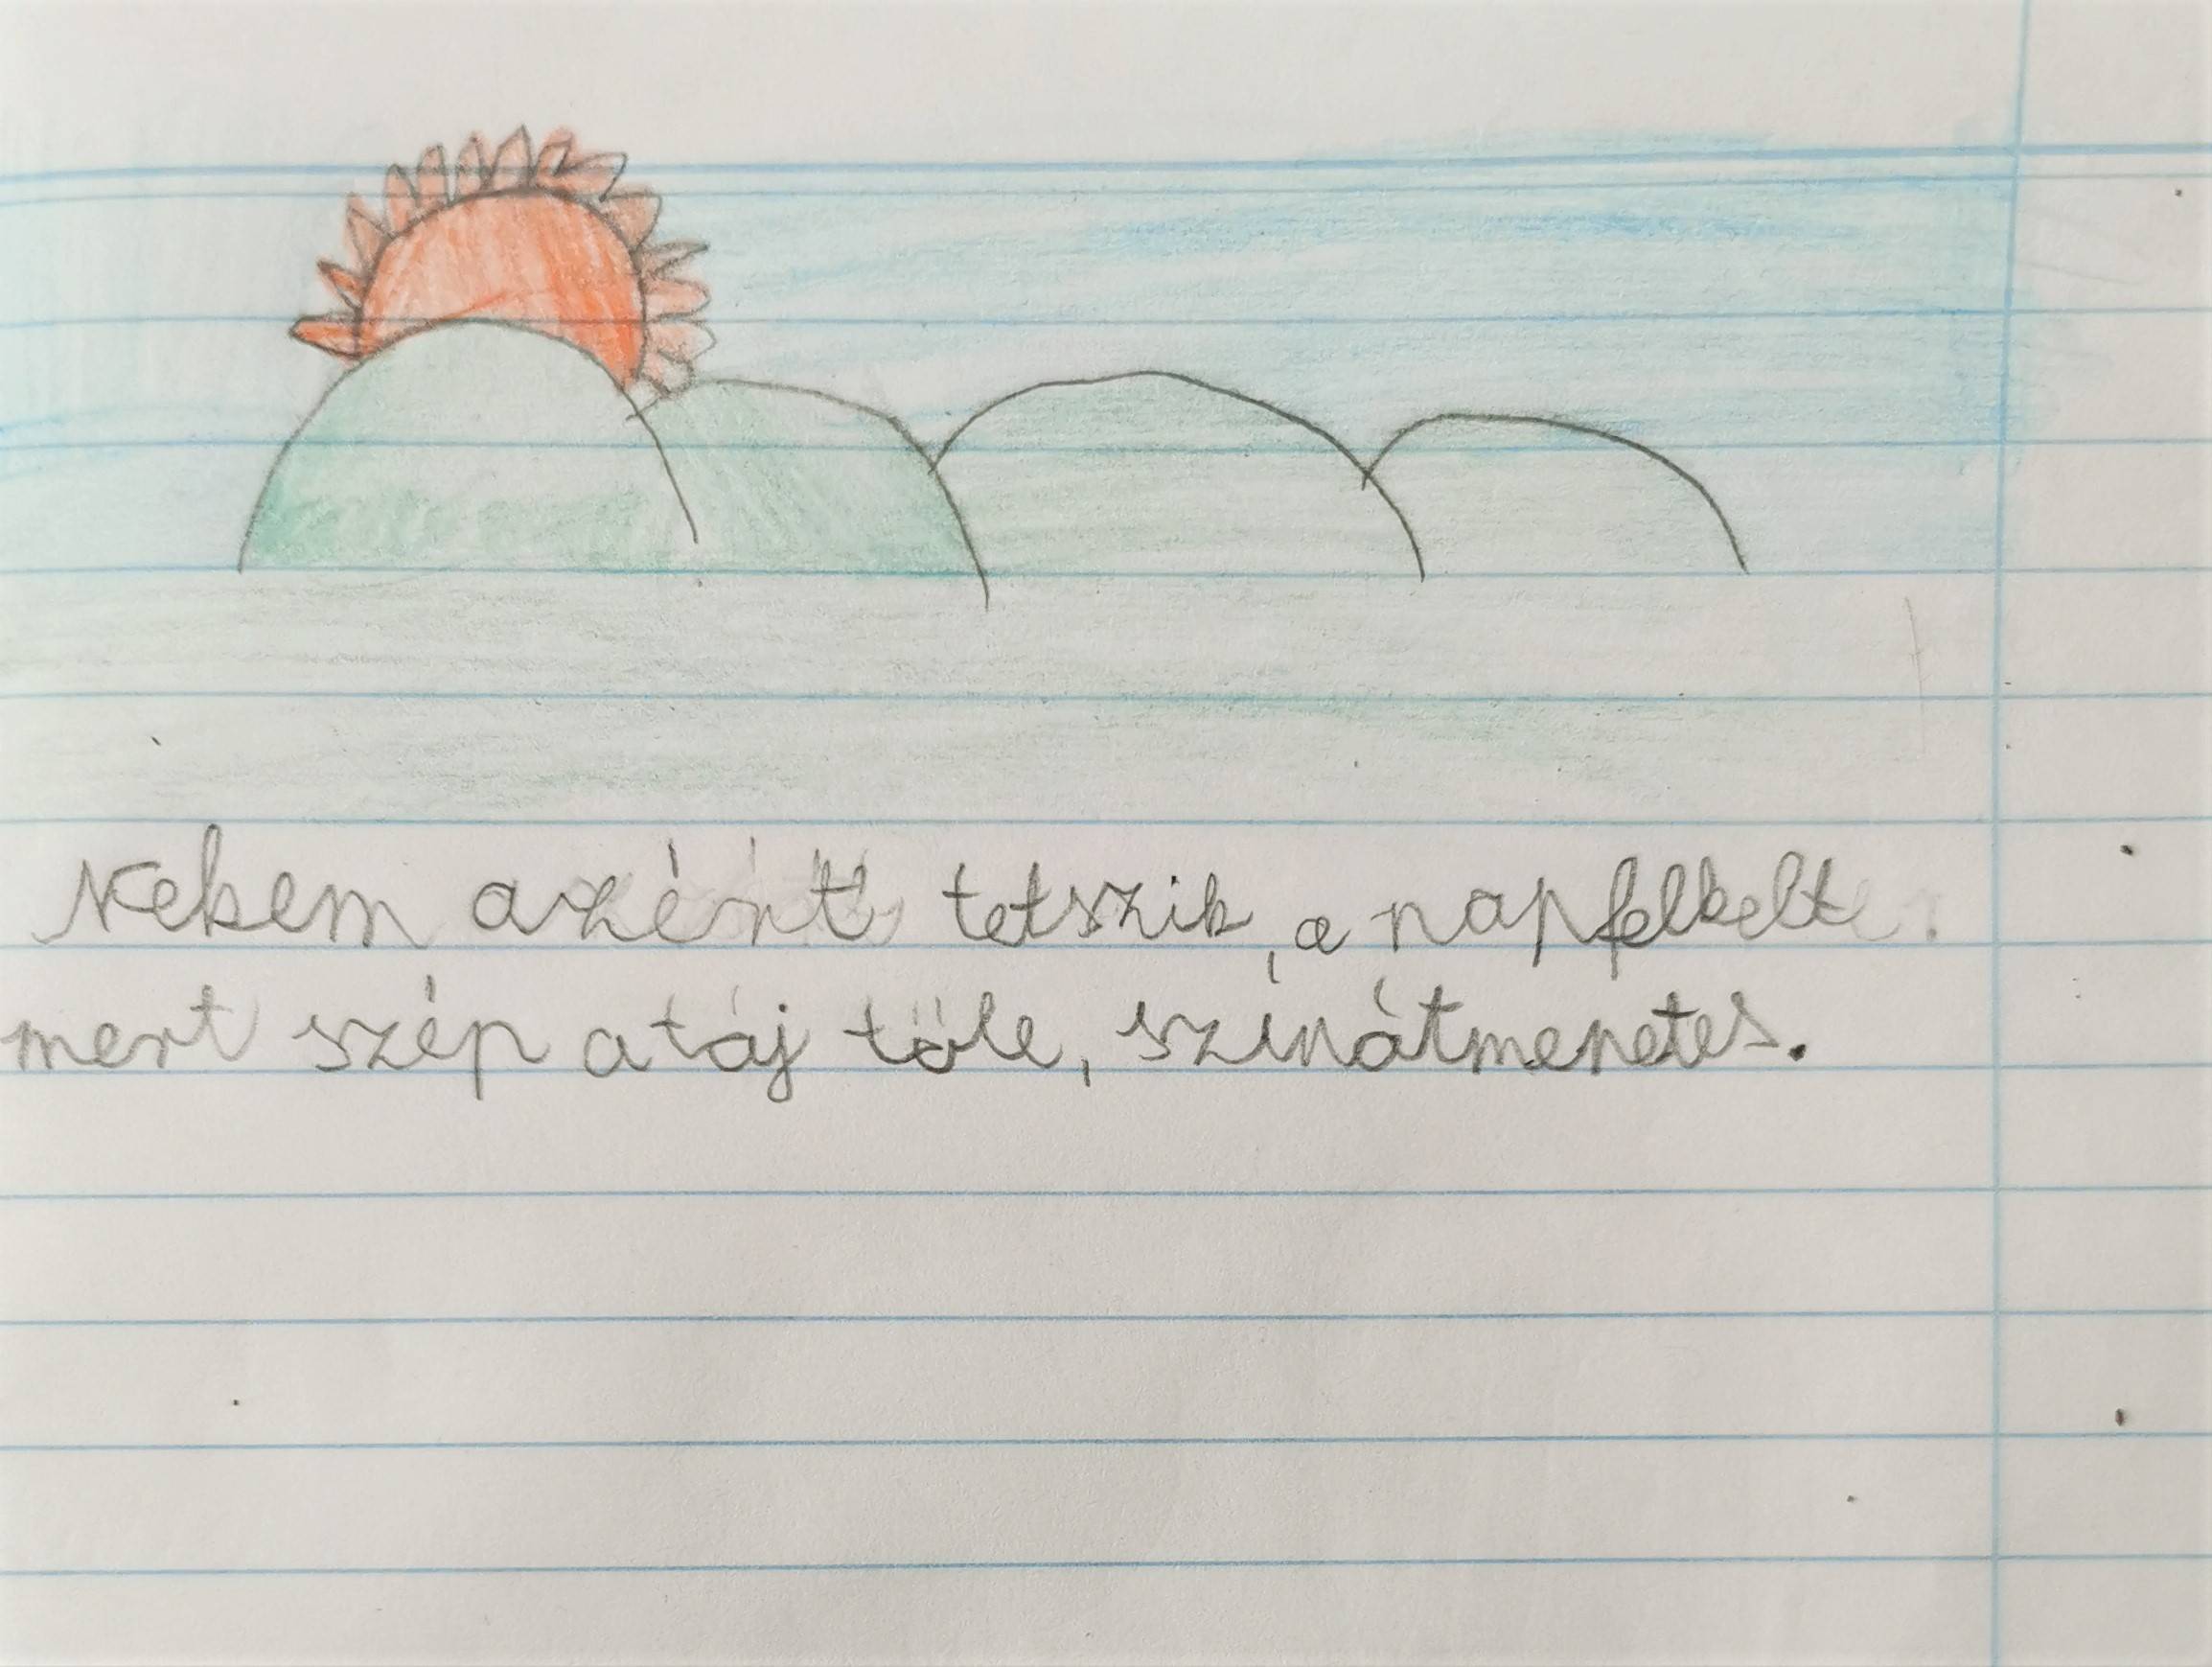 Nekem azért tetszik, a napfelkelte.
mert szép a táj töle, szinátmenetes.